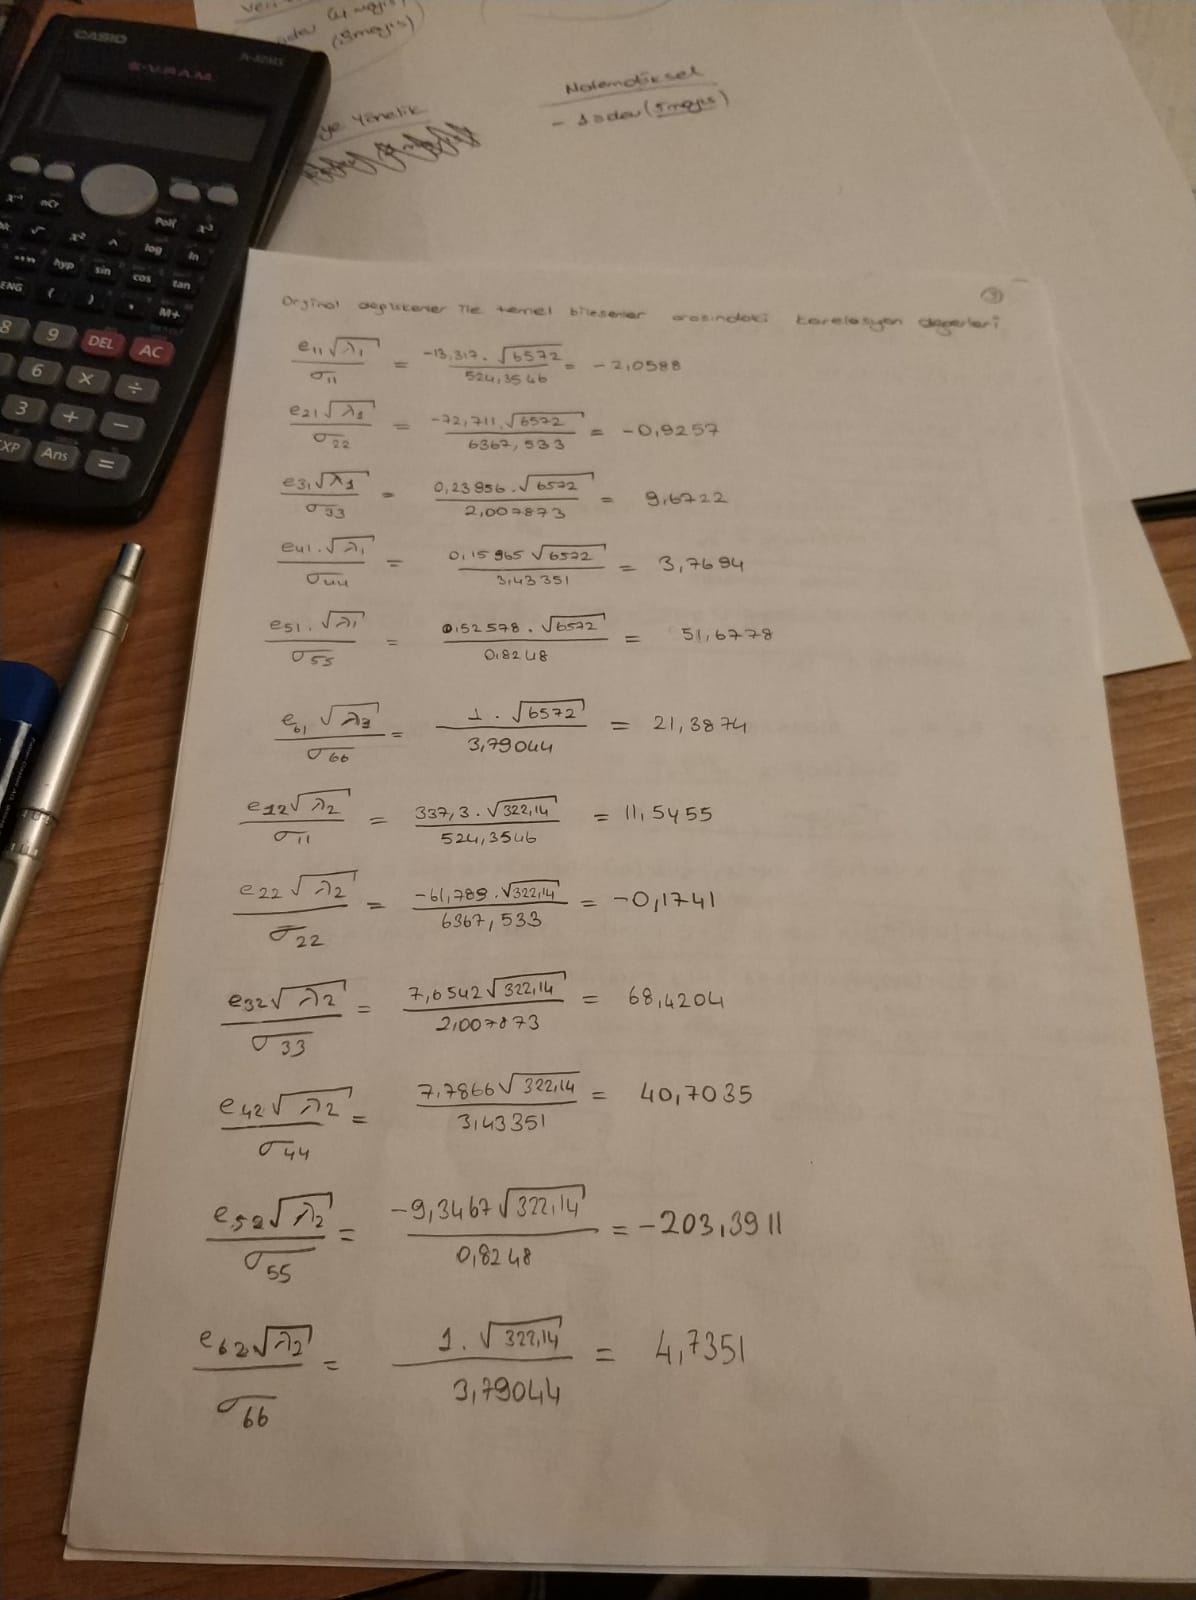 CASIO
S-V.P.A.M.
fx-82MS
(4 mayıs)
(5 mayıs)
Yönelik
Matematiksel
- 1 ödev (5 mayıs)
x⁻¹ nCr Pol( x³
√ x² ^ log ln
hyp sin cos tan
ENG ( ) , M+
8 9 DEL AC
6 × ÷
3 + −
EXP Ans =
9
Orjinal değişkenler ile temel bileşenler arasındaki korelasyon değerleri
e11√λ1 / σ11 = -13,317.√6572 / 524,3546 = -2,0588
e21√λ1 / σ22 = -72,711.√6572 / 6367,533 = -0,9257
e31√λ1 / σ33 = 0,23956.√6572 / 2,007873 = 9,6722
e41.√λ1 / σ44 = 0,15965√6572 / 3,43351 = 3,7694
e51.√λ1 / σ55 = 0,52578.√6572 / 0,8248 = 51,6778
e61√λ3 / σ66 = 1.√6572 / 3,79044 = 21,3874
e12√λ2 / σ11 = 337,3.√322,14 / 524,3546 = 11,5455
e22√λ2 / σ22 = -61,789.√322,14 / 6367,533 = -0,1741
e32√λ2 / σ33 = 7,6542√322,14 / 2,007873 = 68,4204
e42√λ2 / σ44 = 7,7866√322,14 / 3,43351 = 40,7035
e52√λ2 / σ55 = -9,3467√322,14 / 0,8248 = -203,3911
e62√λ2 / σ66 = 1.√322,14 / 3,79044 = 4,7351